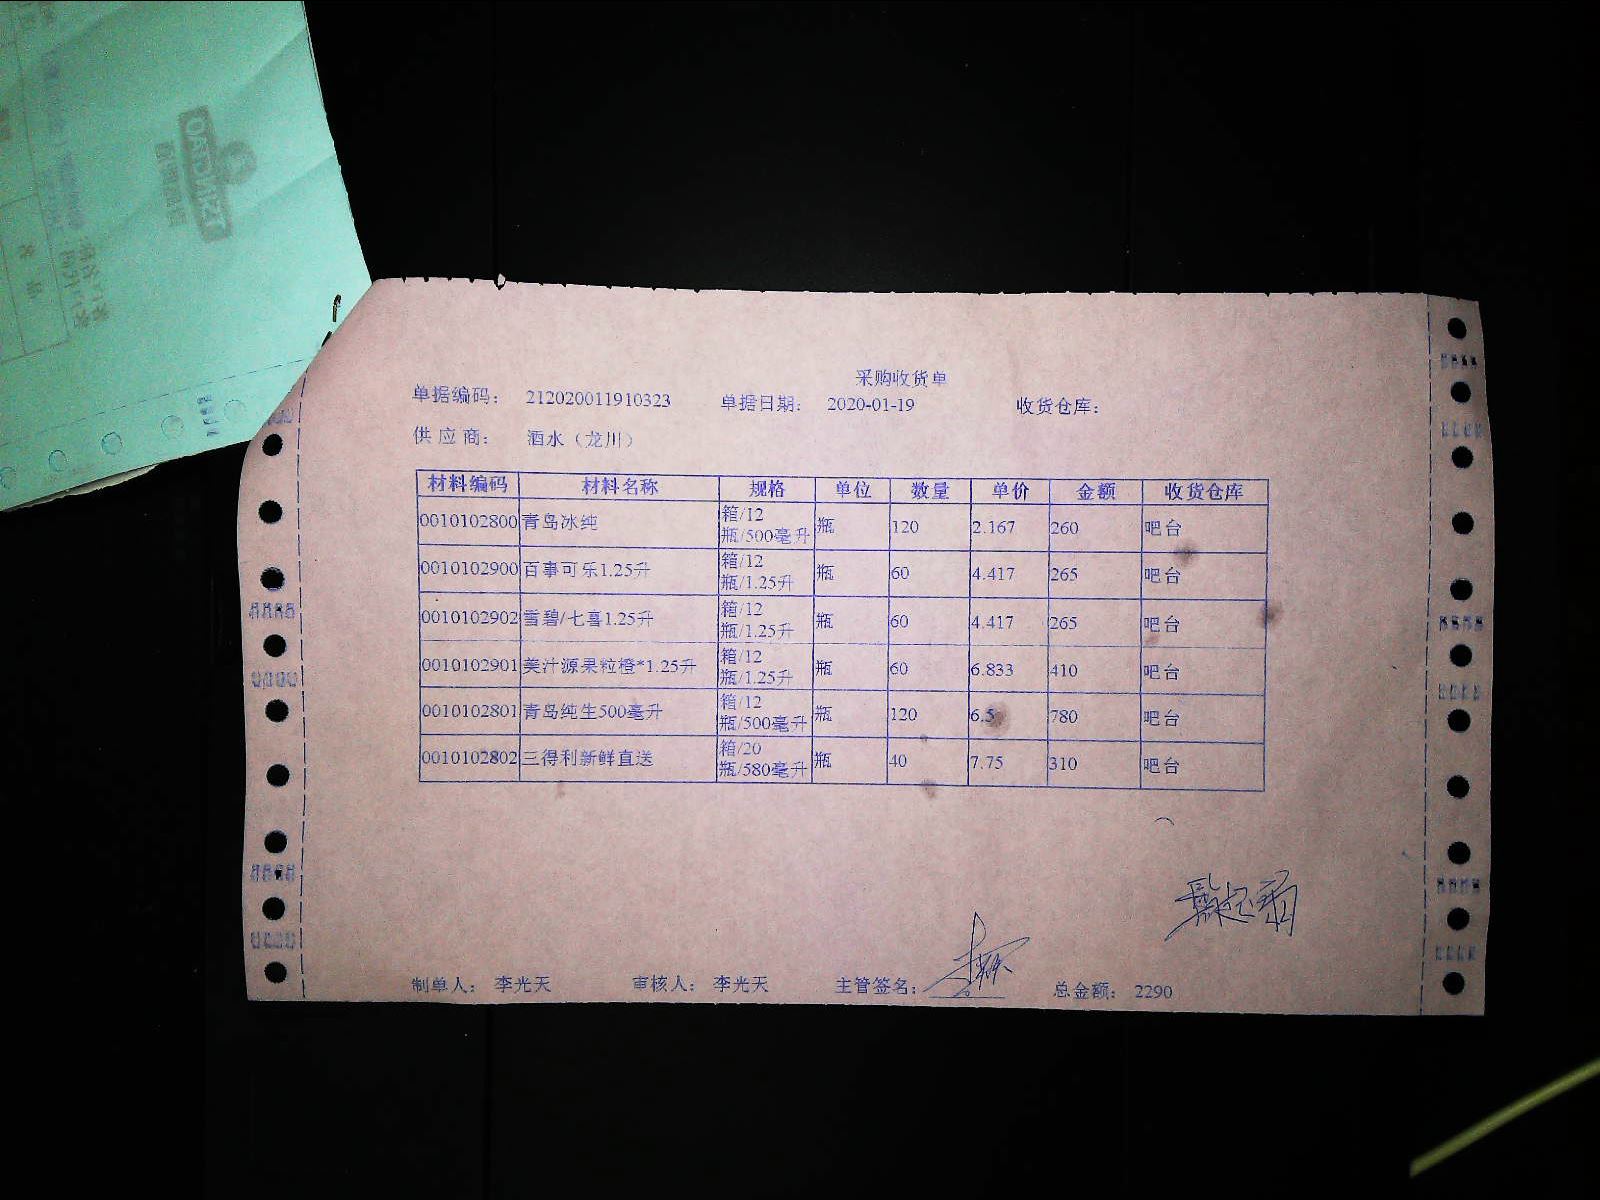 采购收货单
单据编码: 212020011910323 单据日期: 2020-01-19 收货仓库:
供应商: 酒水（龙川）
材料编码 材料名称 规格 单位 数量 单价 金额 收货仓库
0010102800 青岛冰纯 箱/12瓶/500毫升 瓶 120 2.167 260 吧台
0010102900 百事可乐1.25升 箱/12瓶/1.25升 瓶 60 4.417 265 吧台
0010102902 雪碧/七喜1.25升 箱/12瓶/1.25升 瓶 60 4.417 265 吧台
0010102901 美汁源果粒橙*1.25升 箱/12瓶/1.25升 瓶 60 6.833 410 吧台
0010102801 青岛纯生500毫升 箱/12瓶/500毫升 瓶 120 6.5 780 吧台
0010102802 三得利新鲜直送 箱/20瓶/580毫升 瓶 40 7.75 310 吧台
制单人: 李光天 审核人: 李光天 主管签名: 总金额: 2290